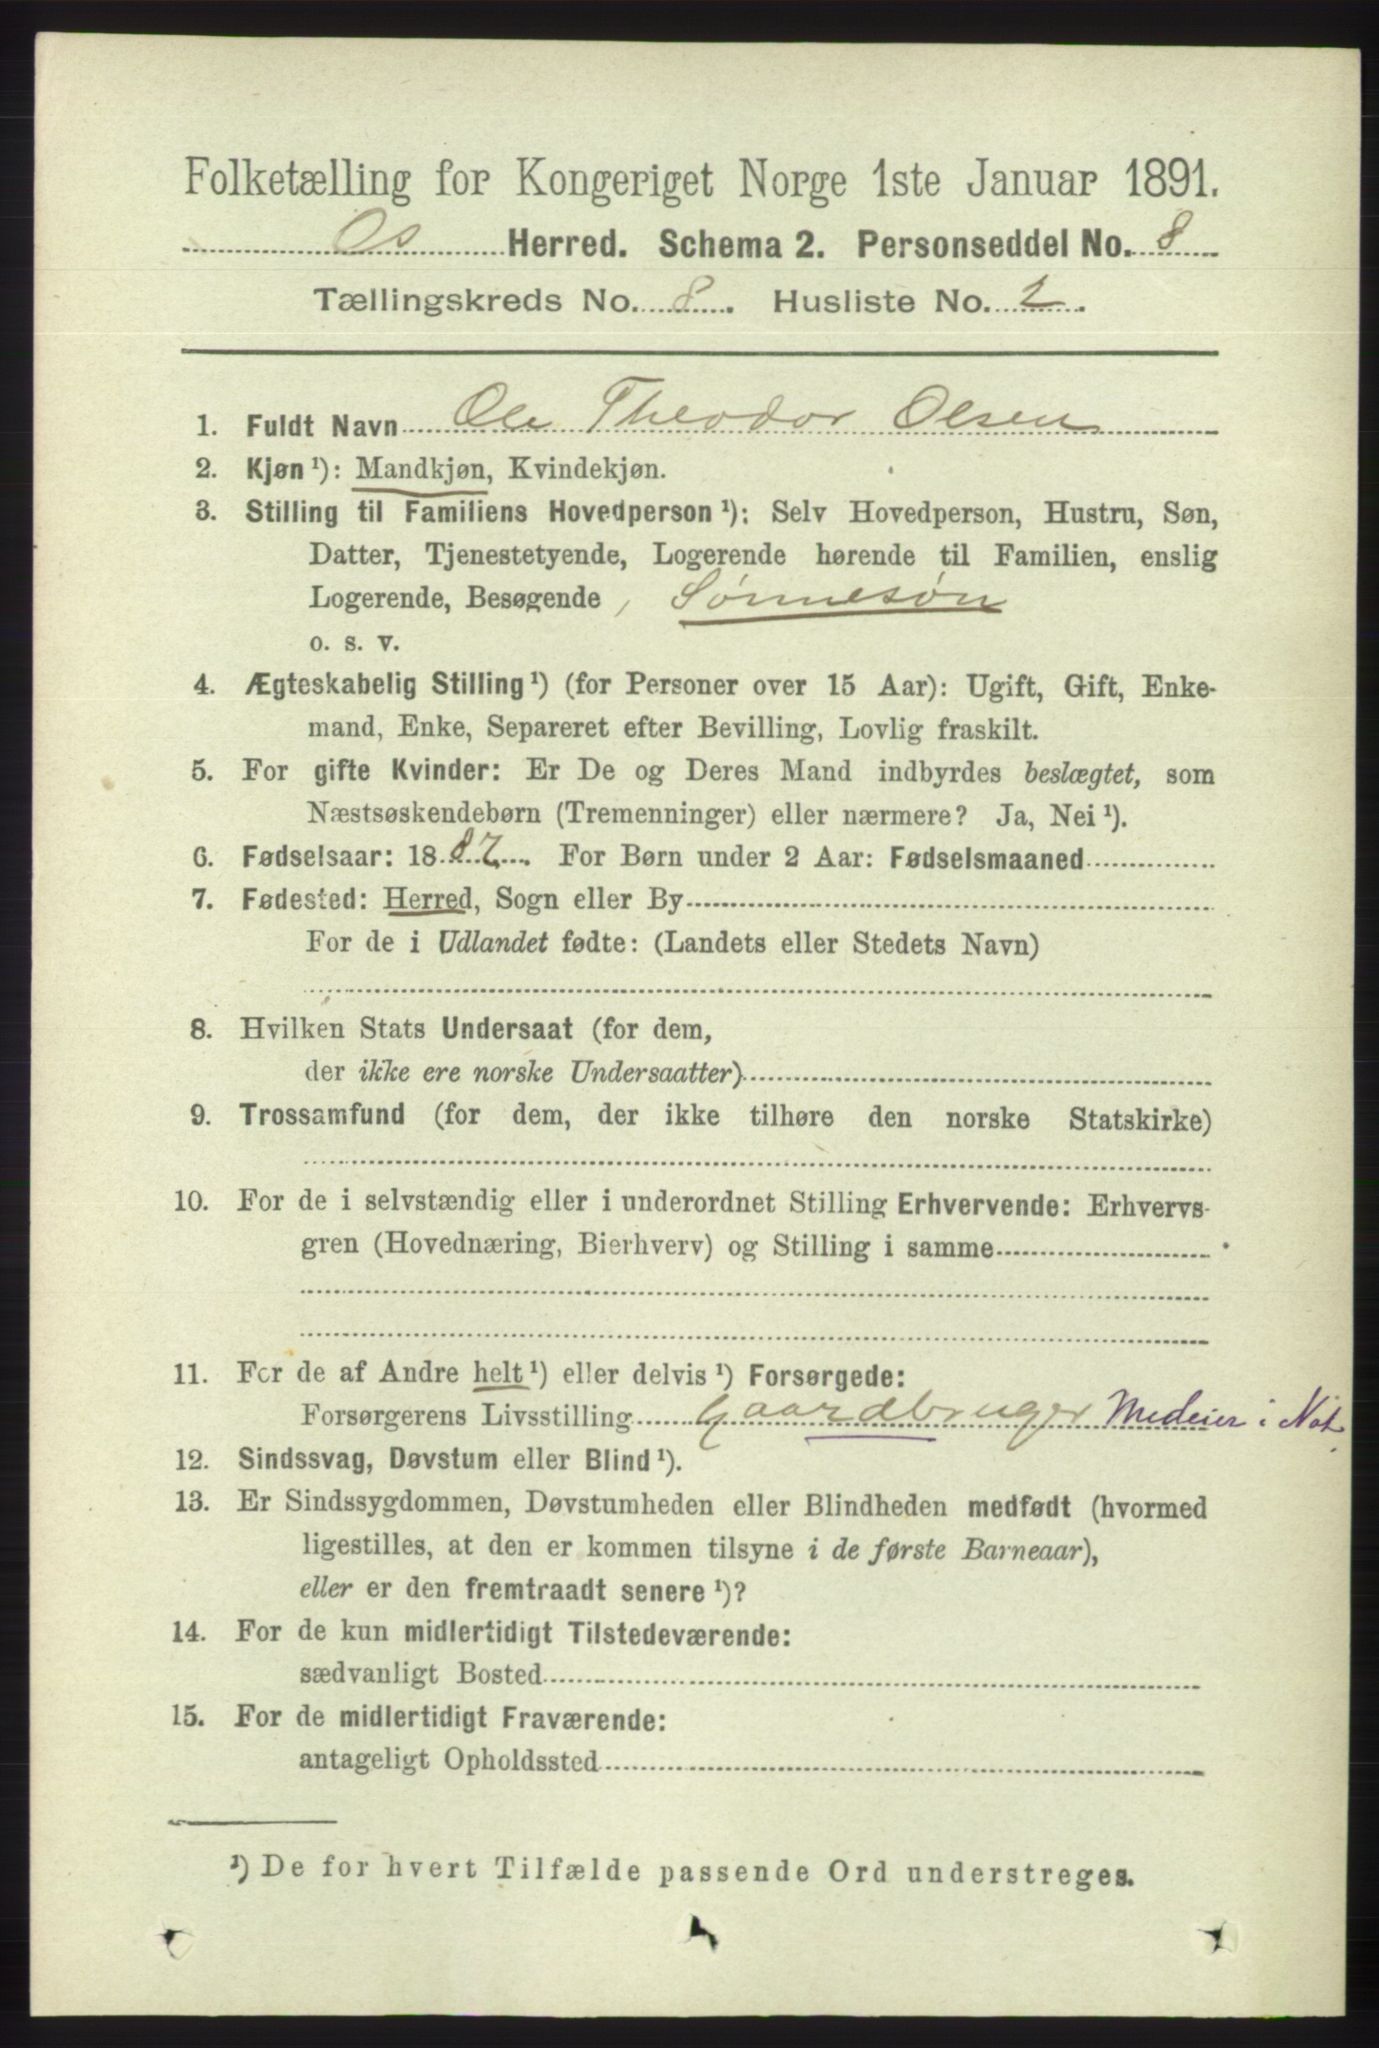 Folketælling for Kongeriget Norge 1ste Januar 1891.
Os Herred. Schema 2. Personseddel No. 8
Tællingskreds No. 8. Husliste No. 2.
1. Fuldt Navn Ole Theodor Olsen
2. Kjøn ¹): Mandkjøn, Kvindekjøn.
3. Stilling til Familiens Hovedperson ¹): Selv Hovedperson, Hustru, Søn,
Datter, Tjenestetyende, Logerende hørende til Familien, enslig
Logerende, Besøgende, Sønnesøn
o. s. v.
4. Ægteskabelig Stilling ¹) (for Personer over 15 Aar): Ugift, Gift, Enke-
mand, Enke, Separeret efter Bevilling, Lovlig fraskilt.
5. For gifte Kvinder: Er De og Deres Mand indbyrdes beslægtet, som
Næstsøskendebørn (Tremenninger) eller nærmere? Ja, Nei ¹).
6. Fødselsaar: 1887. For Børn under 2 Aar: Fødselsmaaned
7. Fødested: Herred, Sogn eller By
For de i Udlandet fødte: (Landets eller Stedets Navn)
8. Hvilken Stats Undersaat (for dem,
der ikke ere norske Undersaatter)
9. Trossamfund (for dem, der ikke tilhøre den norske Statskirke)
10. For de i selvstændig eller i underordnet Stilling Erhvervende: Erhvervs-
gren (Hovednæring, Bierhverv) og Stilling i samme
11. For de af Andre helt ¹) eller delvis ¹) Forsørgede:
Forsørgerens Livsstilling Gaardbruger Medeier i Not
12. Sindssvag, Døvstum eller Blind ¹).
13. Er Sindssygdommen, Døvstumheden eller Blindheden medfødt (hvormed
ligestilles, at den er kommen tilsyne i de første Barneaar),
eller er den fremtraadt senere ¹)?
14. For de kun midlertidigt Tilstedeværende:
sædvanligt Bosted
15. For de midlertidigt Fraværende:
antageligt Opholdssted
¹) De for hvert Tilfælde passende Ord understreges.